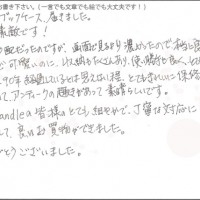 お書き下さい。（一言でも文章でも絵でも大丈夫です！）
ブックケース、届きました。
素敵です！
配だったのですが、画面で見るより濃かったので
可愛いのに、けっこうたくさんあり、使い勝手も良く、
90年経過しているとは思えない程、とてもきれいに保
て、アンティークの趣きがあって素晴らしいです。
andleの皆様のとても細やかで、丁寧な対応に
して、良いお買物ができました。
とうございました。